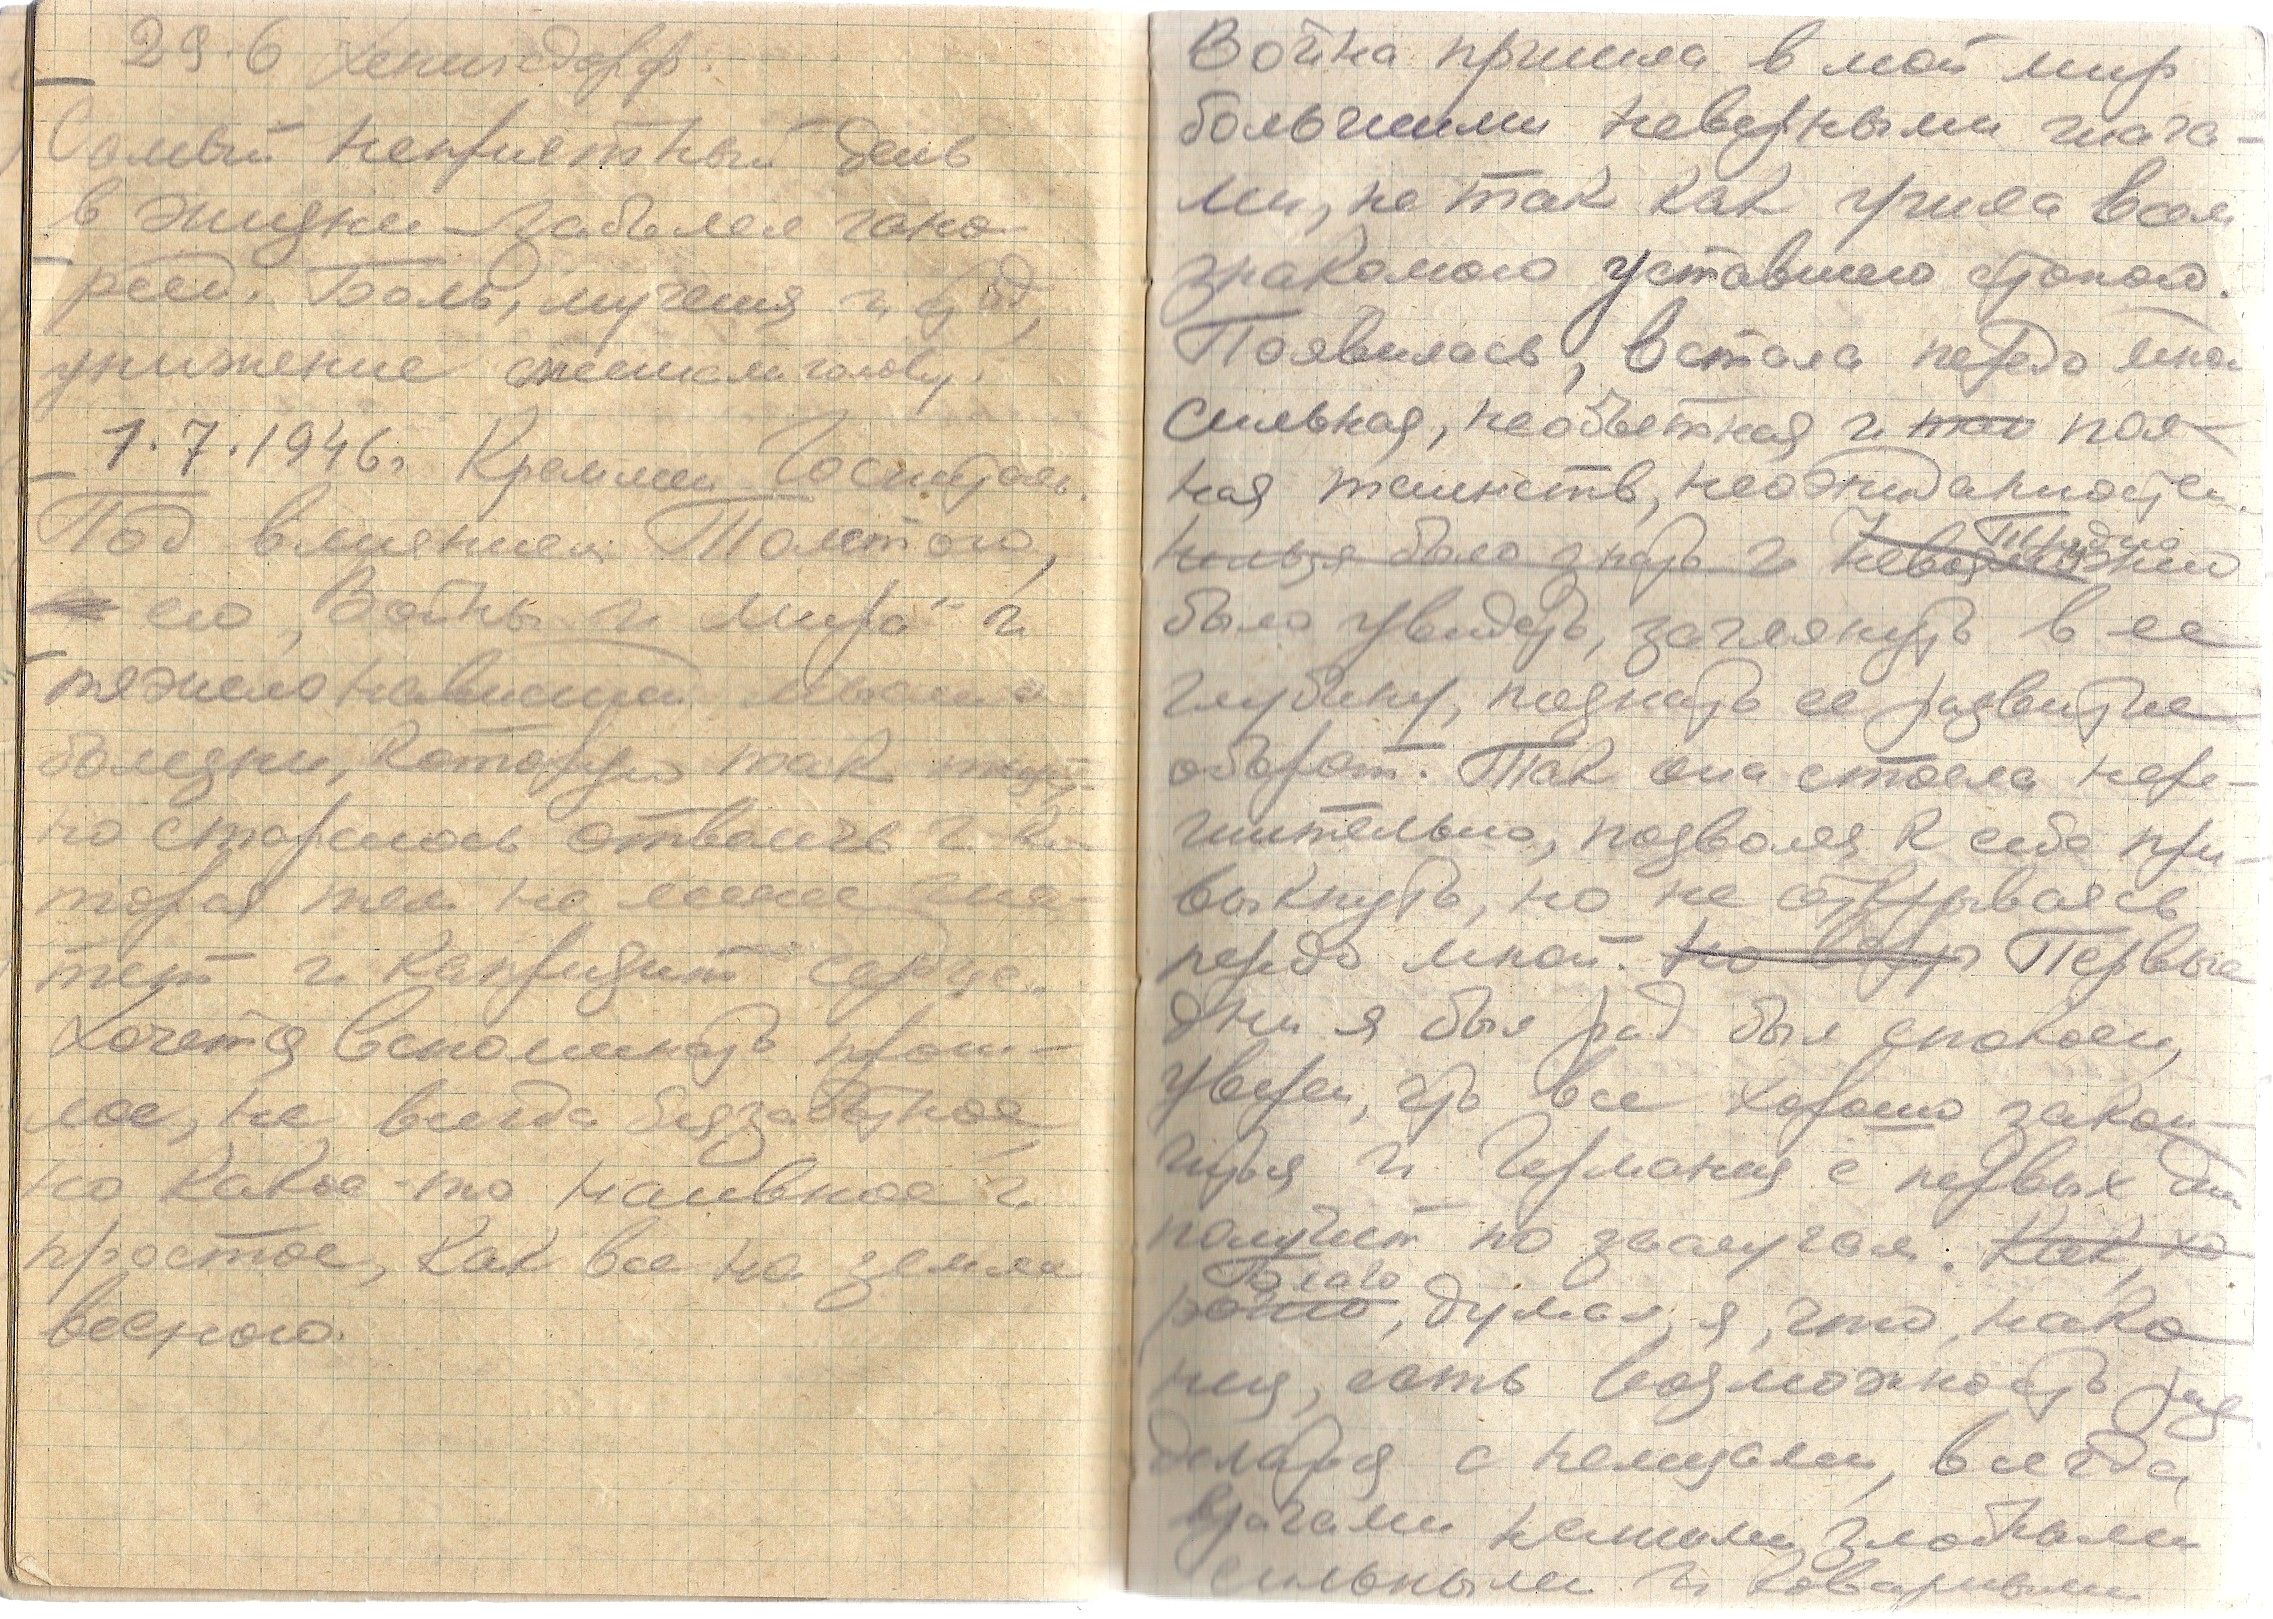 29.6 Хенигсдорф.
Самый неприятный день
в жизни – заболел гоно-
реей. Боль, мучения и
унижение голову.
1.7.1946г Креммен Госпиталь.
Под влиянием Толстого,
его „Войны и мира" и
тяжело нависшей мысли о
болезни, которую так тщет-
но стараюсь отвлечь и ко-
торая тем не менее гне-
тет и капризит сердце.
Хочется вспоминать прош-
лое, не всегда беззаботное,
но какое-то наивное и
простое, как все на земле
весного.
Война пришла в мой мир
большими неверными шага-
ми, не так как учила всем
знакомого уставшего строкой.
Появилась, встала передо мной
сильная, необъятная и пол-
ная таинств, неожиданностей.
нельзя было знать и невозможно Трудно
было увидеть, заглянуть в ее
глубину, познать ее развитие
оборот. Так она стояла нере-
шительно, позволяя к себе при-
выкнуть, но не открываясь
передо мной. Первые
дни я был рад был спокоен,
уверен, что все хорошо закон-
чится и Германия с первых дней
получит по заслугам. Как, хо
рошо Благо, думал я, что, нако
нец, есть возможность раз
делаться с немцами, всегда
врагами нашими злобными
сильными и коварными